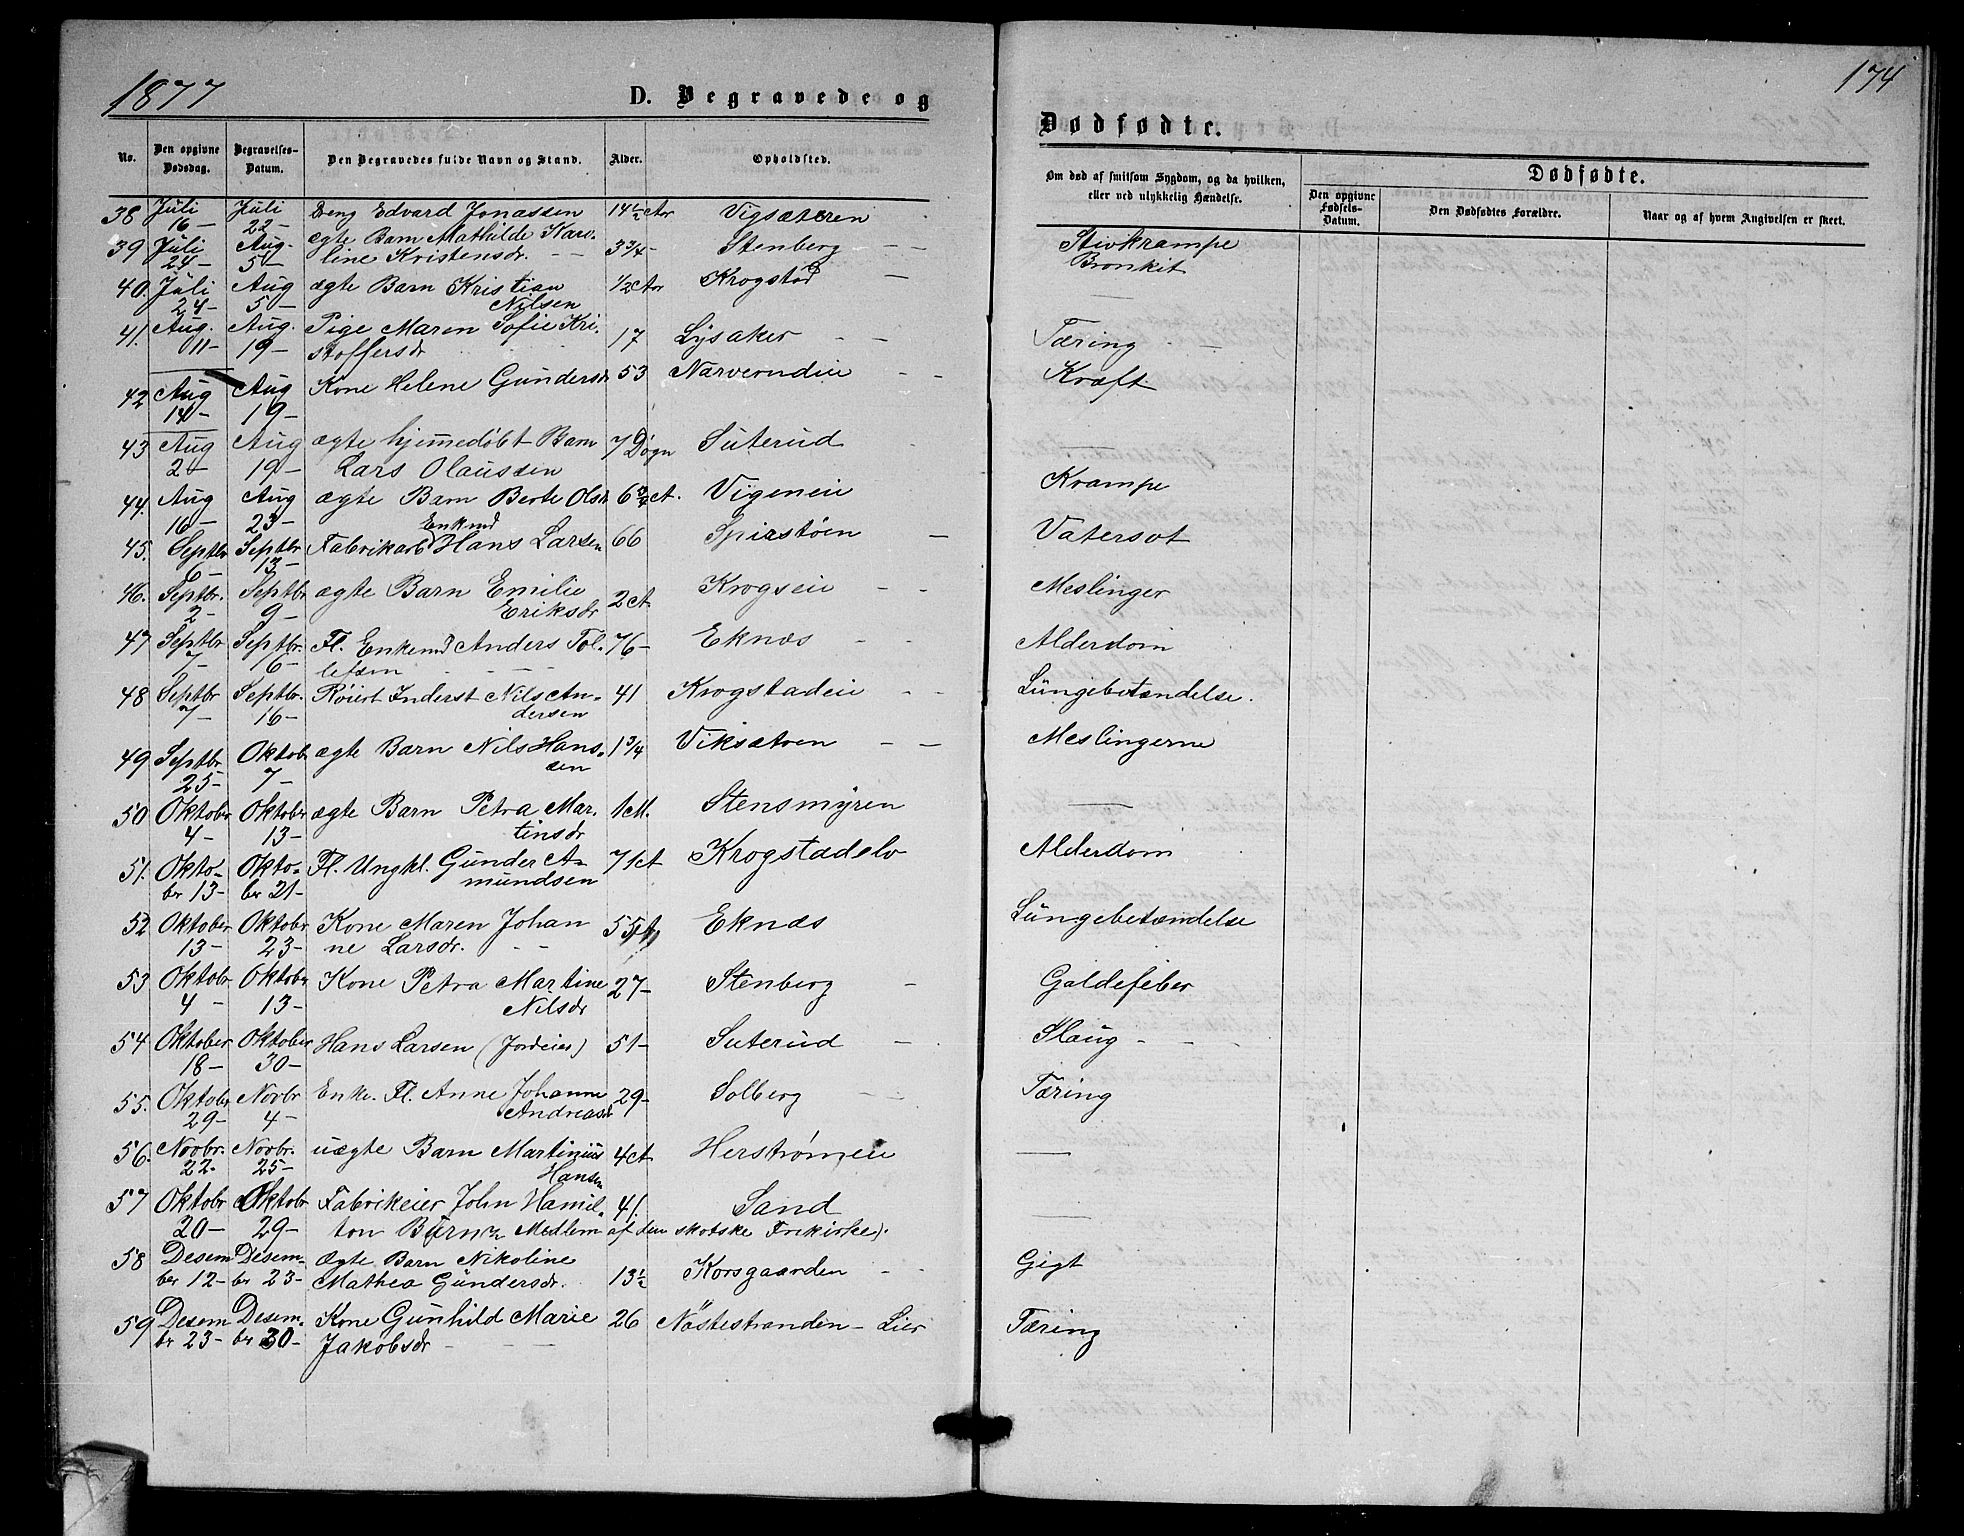 1877
174
D. Begravede og
Dødfødte.
No.
Den opgivne Dødsdag.
Begravelses-Datum.
Den Begravedes fulde Navn og Stand.
Alder.
Opholdsted.
Om død af smitsom Sygdom, og da hvilken, eller ved ulykkelig Hændelse.
Dødfødte.
Den opgivne Fødsels-Datum.
Den Dødfødtes Forældre.
Naar og af hvem Angivelsen er skeet.
38 Juli 16– Juli 22– Dreng Edvard Jonassen 14½ Aar Vigsæteren
39 Juli 24– Aug. 5– ægte Barn Mathilde Karoline Kristensdr. 3¾– Stenberg Stivkrampe Bronkit
40. Juli 24– Aug 5– ægte Barn Kristian Nilsen ½ Aar Krogstad —
41. Aug. 11– Aug. 19– Pige Maren Sofie Kristoffersdr 17 Lysaker Tæring
42 Aug 14– Aug 19– Kone Helene Gundersdr 53 Narverudeie Kræft
43 Aug 2– Aug 19– ægte hjemmedøbt Barn Lars Olaussen 7 Døgn Suterud —
44. Aug 16– Aug 23– ægte Barn Berte Olsdr 6¾ A. Vigeneie Krampe
45. Septbr 6– Septbr 13– Fabrikarb. Enkmd Hans Larsen 66 Spirstøen Vatersot
46. Septbr. 2– Septbr 9– ægte Barn Emilie Eriksdr 2 A Krogseie Meslinger
47 Septbr 7– Septbr. 16– Fl. Enkemd Anders Tollefsen 76– Eknæs Alderdom
48 Septbr 7– Septbr. 16– Inderst Nils Andersen 41 Krogstadeie Lungebetændelse.
49 Septbr 25– Oktob. 7– ægte Barn Nils Hansen 1¾ Viksætren Meslingerne
50 Oktober 4– Oktober 13– ægte Barn Petra Martinsdr 1 M. Stensmyren —
51. Oktober 13– Oktober 21– Fl. Ungkl. Gunder Amundsen 71 A Krogstadelv Alderdom
52 Oktober 13– Oktobr 23– Kone Maren Johanne Larsdr. 55 A Eknæs Lungebetændelse
53 Oktobr 4– Oktober 13– Kone Petra Martine Nilsdr 27– Stenberg Galdefeber
54 Oktober 18– Oktober 30– Hans Larsen (Jordeier) 51– Suterud Slaug
55. Oktober 29– Novbr 4– Enke. Fl. Anne Johanne Andreasdr 29– Solberg Tæring
56. Novbr. 22– Novbr. 25– uægte Barn Martinius Hansen 4 A Herstrømeie —
57 Oktobr 20– Oktobr 29– Fabrikeier John Hamilton 41. Sand —
Medlem af den skotske Frikirke).
58 Desember 12– Desember 23– Ægte Barn Nikoline Mathea Gundersdr. 13½ Korsgaarden Gigt
59 Desember 23– Desember 30– Kone Gunhild Marie Jakobsdr 26 Nöstestranden – Lier Tæring